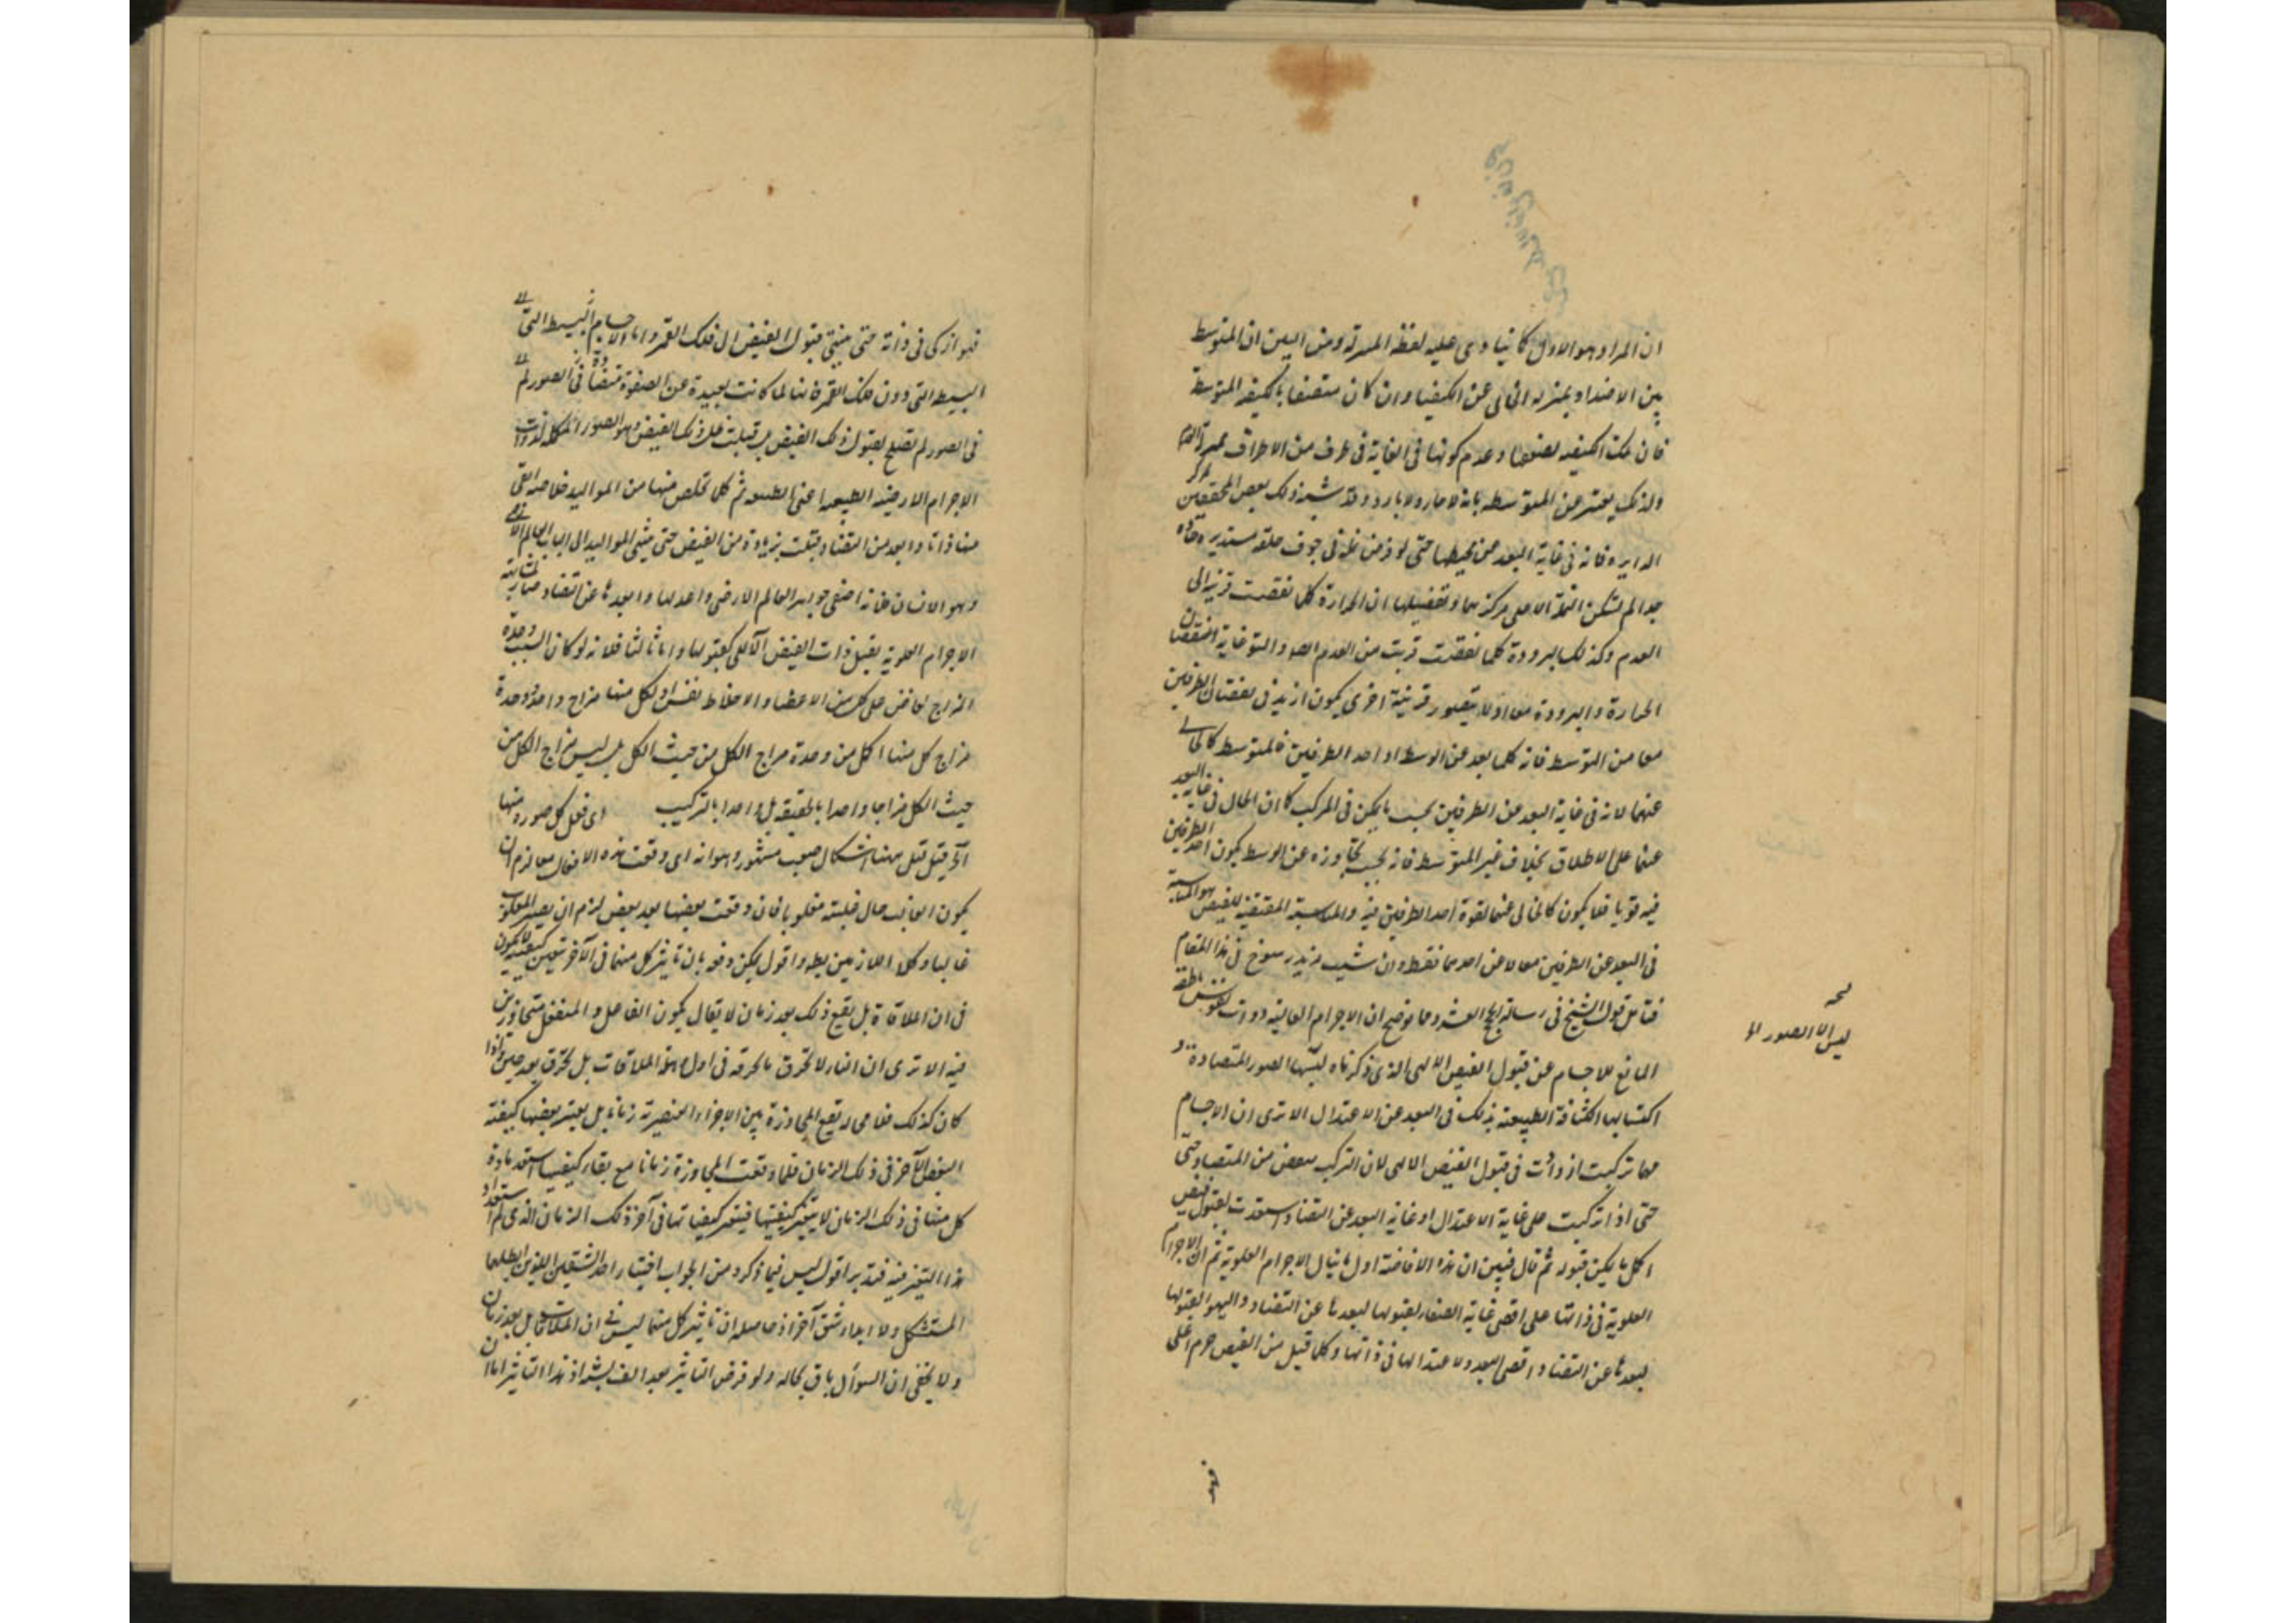 ان المراد هو الاول كما ينادى عليه لفظة المسرته ومن البين ان المتوسط
بين الاضداد بمنزلة الخالى عن الكيفيا وان كان متصفا بالكيفية المتوسطة
فان تلك الكيفية لضعفها وعدم كونها فى الغاية فى طرف من الاطراف بمنزلة العدم
ولذلك يعتبر عن المتوسط بانه لا حار ولا بارد وقد شبه ذلك بعض المحققين بمركز
الدايرة فانه فى غاية البعد عن محيطها حتى لو فرض نملة فى جوف حلقة مستديرة حارة
جدا لم تسكن النملة الا على مركزها وتفصيلها ان الحرارة كلما نقصت قربة الى
العدم وكذلك البرودة كلما نقصت قربت من العدم والتوسط غاية انتقصان
الحرارة والبرودة معا ولا يتصور قرينة اخرى يكون ازيد فى نقصان الطرفين
معا من التوسط فانه كلما بعد عن الوسط او احد الطرفين فالمتوسط كالخالى
عنهما لانه فى غاية البعد عن الطرفين بحسب ما يمكن فى المركب كما ان الخال فى غاية البعد
عنهما على الاطلاق بخلاف غير المتوسط فانه بحسب تجاوزه عن الوسط يكون احد الطرفين
فيه قويا فلا يكون كالخالى عنهما لقوة احد الطرفين فيه والمناسبة المقتضية للفيض هو المناسبة
فى البعد عن الطرفين معا لا عن احدهما فقط وان شئت مزيد رسوخ فى هذا المقام
فتامل قول الشيخ فى رسالة العشر ومما نوضح ان الاجرام العالية ذوات نفوس ناطقة
المانع للاجسام عن قبول الفيض الالهى الذى ذكرناه ليسها الصور المتضادة و
اكتسابها الكثافة الطبيعية بذلك فى البعد عن الاعتدال الا ترى ان الاجسام
مهما تركبت ازدادت فى قبول الفيض الالهى لان التركيب ينقص من المتضاد حتى
حتى اذا تركبت على غاية الاعتدال او غاية البعد عن التضاد استعدت لقبول فيض
اكمل ما يمكن قبوله ثم قال فبين ان هذه الافاضة اول ما ينال الاجرام العلوية ثم ان الاجرام
العلوية فى ذاتها على اقصى غاية الصفاء لقبولها لبعدها عن التضاد والتهيؤ لقبولها
لبعدها عن التضاد اقصى البعد ولاعتدالها فى ذاتها وكل قبل من الفيض جرم اعلى
فهو
نسخه
ليس الا الصور الم
فهو ازكى فى ذاته حتى ينتهى قبول الفيض الى فلك القمر واما الاجسام البسيط التى
البسيط التى دون فلك القمر فانها لما كانت بعيدة عن الصفوة متضادة فى الصور لم
فى الصور لم تصلح لقبول ذلك الفيض بل قبلت ظل ذلك الفيض وهو الصور المكملة لذوات
الاجرام الارضية الطبيعية اعنى الطبيعة ثم كل تخلص منها من المواليد خلاصة القى
منها ذاتا وابعد من التضاد قبلت زيادة من الفيض حتى ينتهى المواليد الى العالم الارضى
وهو الانسان فانه اصفى جواهر العالم الارضى واعدلها وابعدها عن التضاد مشابه
الاجرام العلوية يقبل ذات الفيض الآلهى كقبولها واما ثالثا فلانه لو كان السبب وحدة
المزاج لفاض على كل من الاعضاء والاخلاط نفس اذ لكل منها مزاج واحد ووحدة
مزاج كل منها اكمل من وحدة مزاج الكل من حيث الكل بل ليس مزاج الكل من
حيث الكل مزاجا واحدا بالحقيقة بل واحدا بالتركيب اى فعل كل صورة منها
آه قيل قيل ههنا اشكال صعب مشهور وهو انه اى وقعت هذه الافعال معا لزم ان
يكون الغالب حال غلبته مغلوبا فان وقعت بعضها بعد بعض لزم ان يصير المغلوب
غالبا وكلا اللازمين باطل واقول يمكن دفعه بان تاثير كل منهما فى الآخر لا يكون
فى ان الملاقاة بل يقع ذلك بعد زمان لا يقال يكون الفاعل والمنفعل متجاوزين
فيه الا ترى ان النار لا تحرق ما تحرقه فى اول هذه الملاقات بل تحرق بعد حين واذا
كان كذلك فلا محالة تقع المجاورة بين الاجزاء العنصرية زمانا بل يعتبر بعضها كيفية
البعض الآخر فى ذلك الزمان فلما وقعت المجاورة زمانا مع بقاء كيفياتها استعد مادة
كل منها فى ذلك الزمان لا يتغير كيفيتها فيتغير كيفياتها فى آخر ذلك الزمان الذى تم استعداد
هذا التغير فيه فتدبر اقول ليس فيما ذكره من الجواب اختيار احد الشقين اللذين ابطلهما
المستشكل ولا ابداء شق آخر اذ حاصله ان تاثير كل منهما ليس فى ان الملاقات بل بعد زمان
ولا يخفى ان السؤال باق بحاله ولو فرض التاثير بعد الف سنة اذ هذا التاثير اما ان